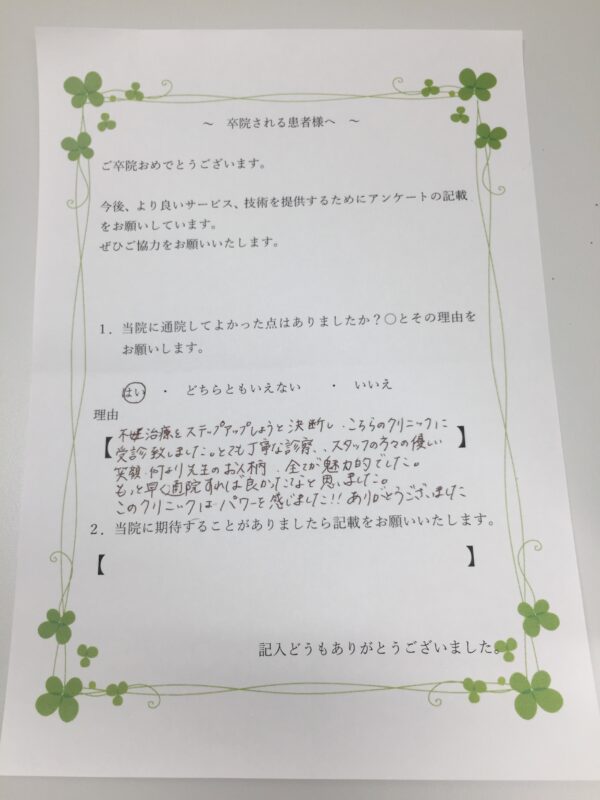 ～ 卒院される患者様へ ～
ご卒院おめでとうございます。
今後、より良いサービス、技術を提供するためにアンケートの記載
をお願いしています。
ぜひご協力をお願いいたします。
1. 当院に通院してよかった点はありましたか？〇とその理由を
お願いします。
はい ・ どちらともいえない ・ いいえ
理由
【不妊治療をステップアップしようと決断し、こちらのクリニックに
受診致しました。とても丁寧な診察、、スタッフの方々の優しい】
笑顔、何より先生のお人柄、全てが魅力的でした。
もっと早く通院すれば良かったなと思いました。
このクリニックはパワーを感じました!! ありがとうございました
2. 当院に期待することがありましたら記載をお願いいたします。
【 】
記入どうもありがとうございました。